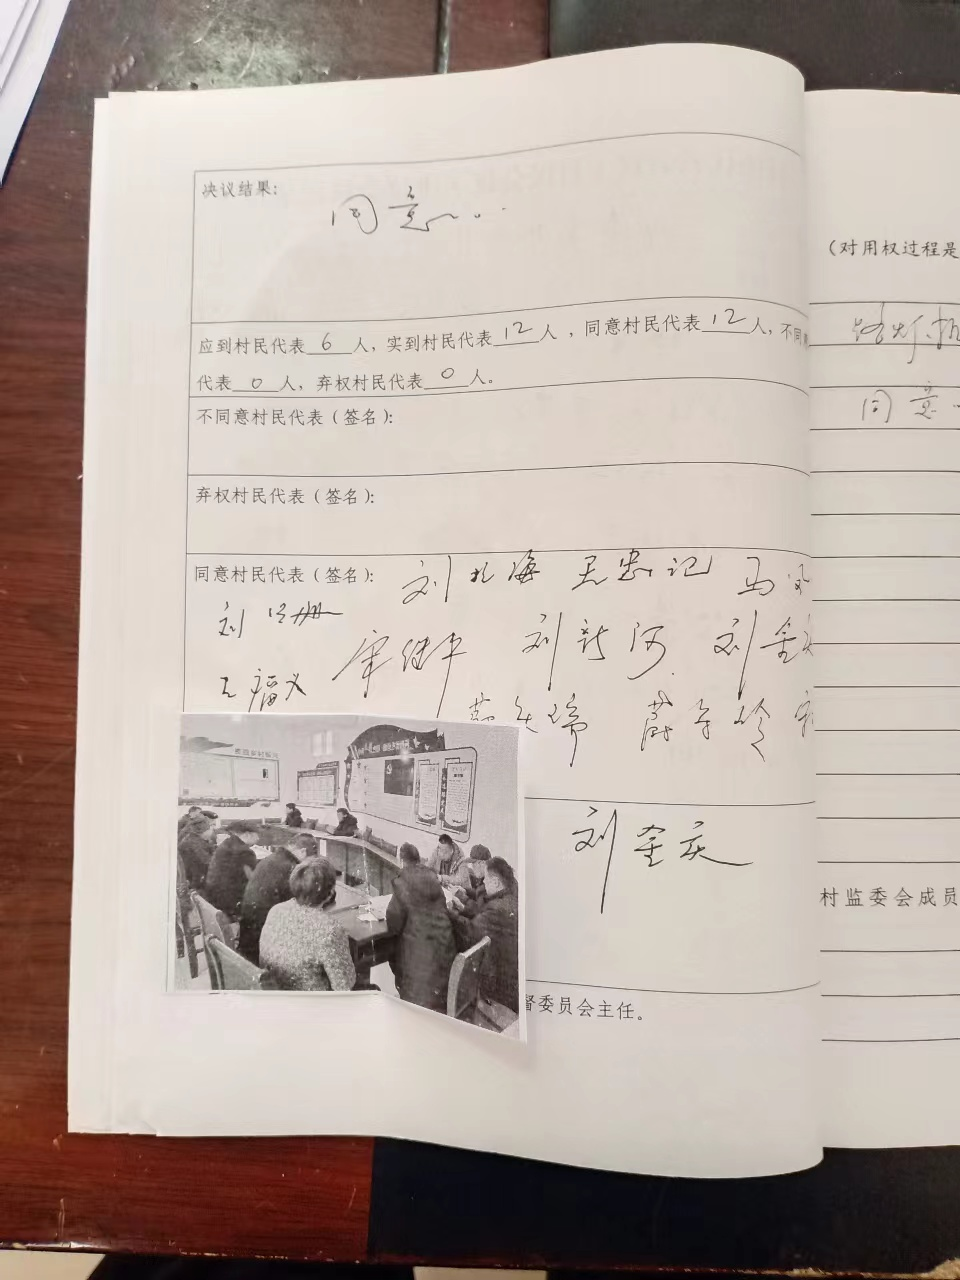 决议结果：
同意
应到村民代表 6 人，实到村民代表 12 人，同意村民代表 12 人，不同
代表 0 人，弃权村民代表 0 人。
不同意村民代表（签名）：
弃权村民代表（签名）：
同意村民代表（签名）：
刘 海 王忠记 马
刘
宋继平 刘新河 刘金
王福义
薛 玲
刘金庆
督委员会主任。
（对用权过程是
路灯
同意
村监委会成员